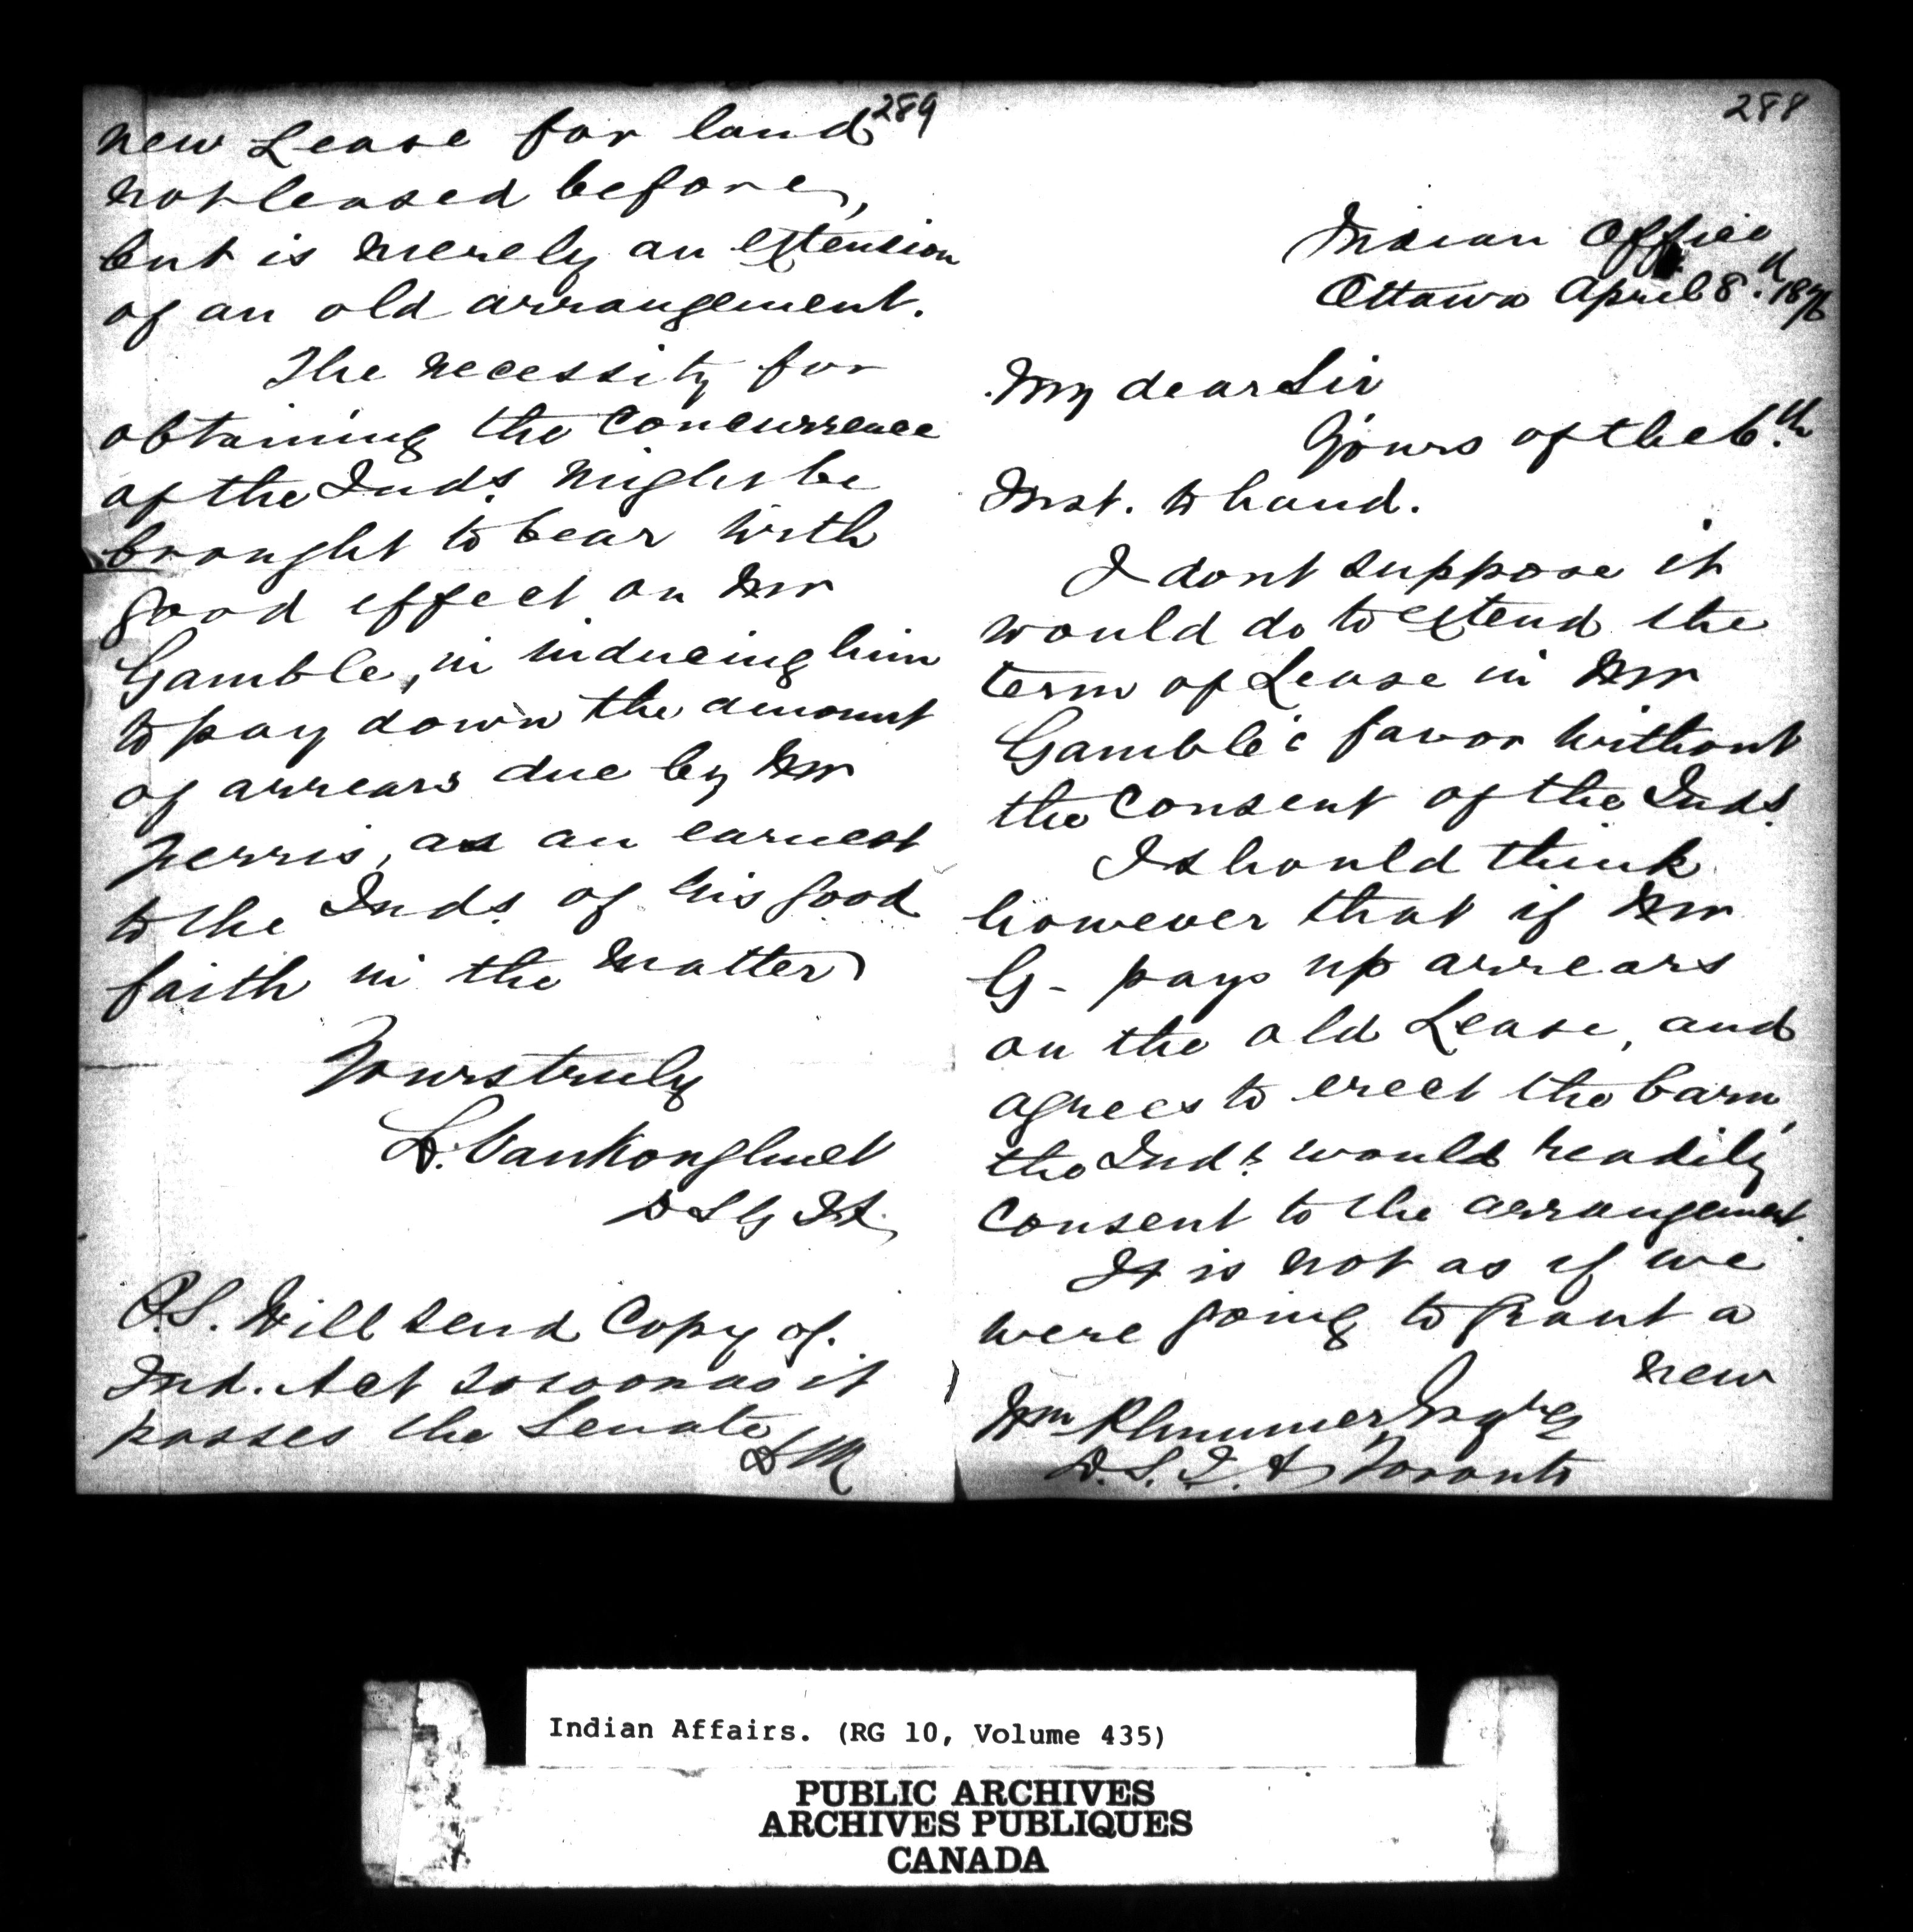 288
Indian Office
Ottawa April 8. 1876
My dear Sir
Yours of the 6.th
Inst. to hand.
I dont suppose it
would do to extend the
term of Lease in Mr
Gamble's favor without
the consent of the Inds.
I should think
however that if Mr
G- pays up arrears
on the old Lease, and
agrees to erect the barn,
the Inds. would readily
consent to the arrangement.
It is not as if we
were going to grant a
new
Wm Plummer Esqre
D.S.I.A Toronto
289
new Lease for land
not leased before,
but is merely an extension
of an old arrangement.
The necessity for
obtaining the concurrence
of the Inds. might be
brought to bear with
good effect on Mr
Gamble, in inducing him
to pay down the amount
of arrears due by Mr
as an earnest
to the Inds. of his good
faith in the matter
Yours truly
L. VanKoughnet
D S G I A
P.S. Will send Copy of
Ind. Act so soon as it
passes the Senate
Indian Affairs. (RG 10, Volume 435)
PUBLIC ARCHIVES
ARCHIVES PUBLIQUES
CANADA